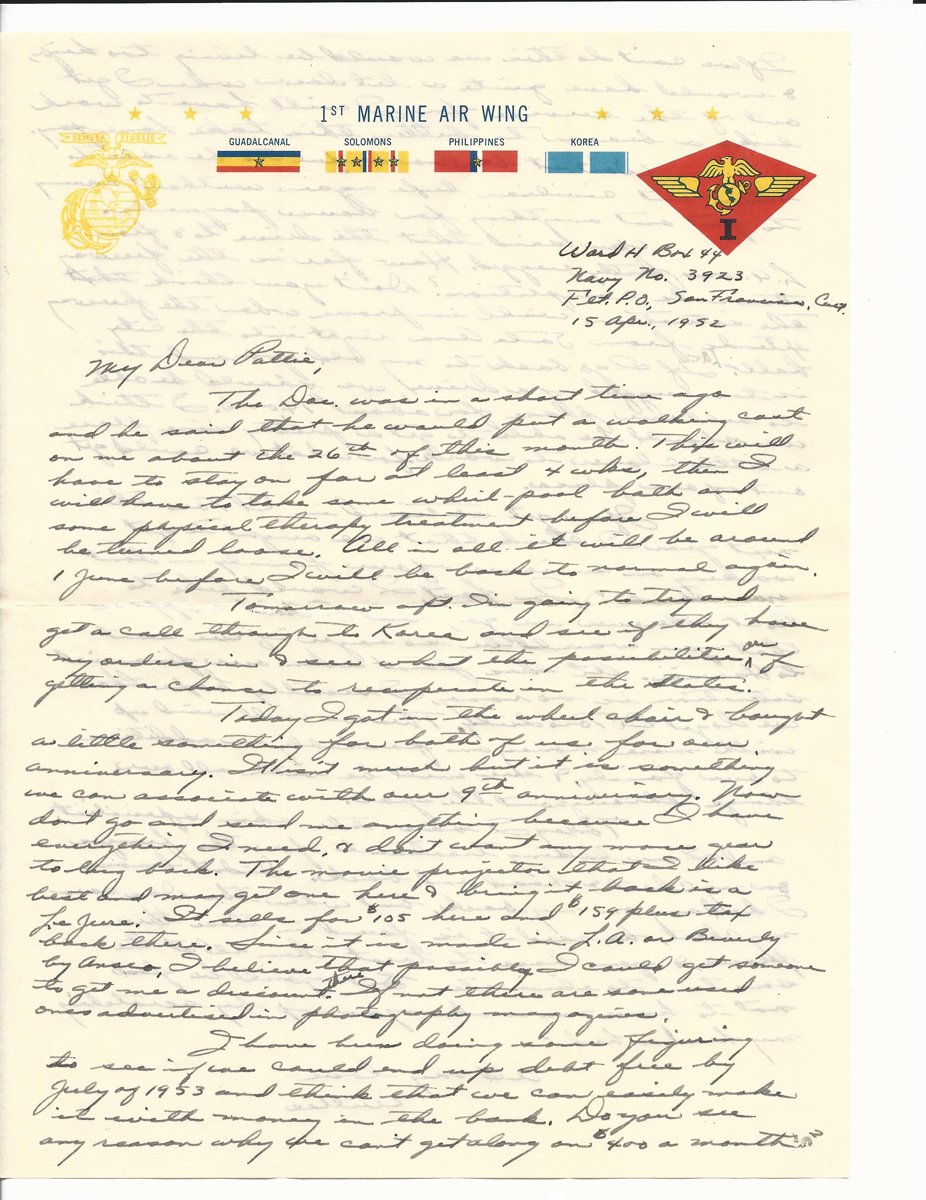 1ST MARINE AIR WING
SEMPER FIDELIS
GUADALCANAL SOLOMONS PHILIPPINES KOREA
I
Ward H Box 44
Navy No. 3923
Flt. P.O., San Francisco, Calif.
15 Apr., 1952
My Dear Pattie,
The Doc. was in a short time ago
and he said that he would put a walking cast
on me about the 26th of this month. This will
have to stay on for at least 4 wks, then I
will have to take some whirl-pool bath and
some physical therapy treatment before I will
be turned loose. All in all it will be around
1 June before I will be back to normal again.
Tomorrow aft. I'm going to try and
get a call through to Korea and see if they have
my orders in & see what the possibilities are of
getting a chance to recuperate in the States.
Today I got in the wheel chair & bought
a little something for both of us for our
anniversary. It isn't much but it is something
we can associate with our 9th anniversary. Now
don't go and send me anything because I have
everything I need, & don't want any more gear
to lug back. The movie projector that I like
best and may get one here & bring it back is a
De Jure. It sells for $105 here and $159 plus tax
back there. Since it is made in L.A. or Beverly
by Ansco, I believe that possibly I could get someone
to get me a discount there. If not there are some used
ones advertised in photography magazines.
I have been doing some figuring
to see if we could end up debt free by
July of 1953 and think that we can easily make
it with money in the bank. Do you see
any reason why we can't get along on $400 a month?